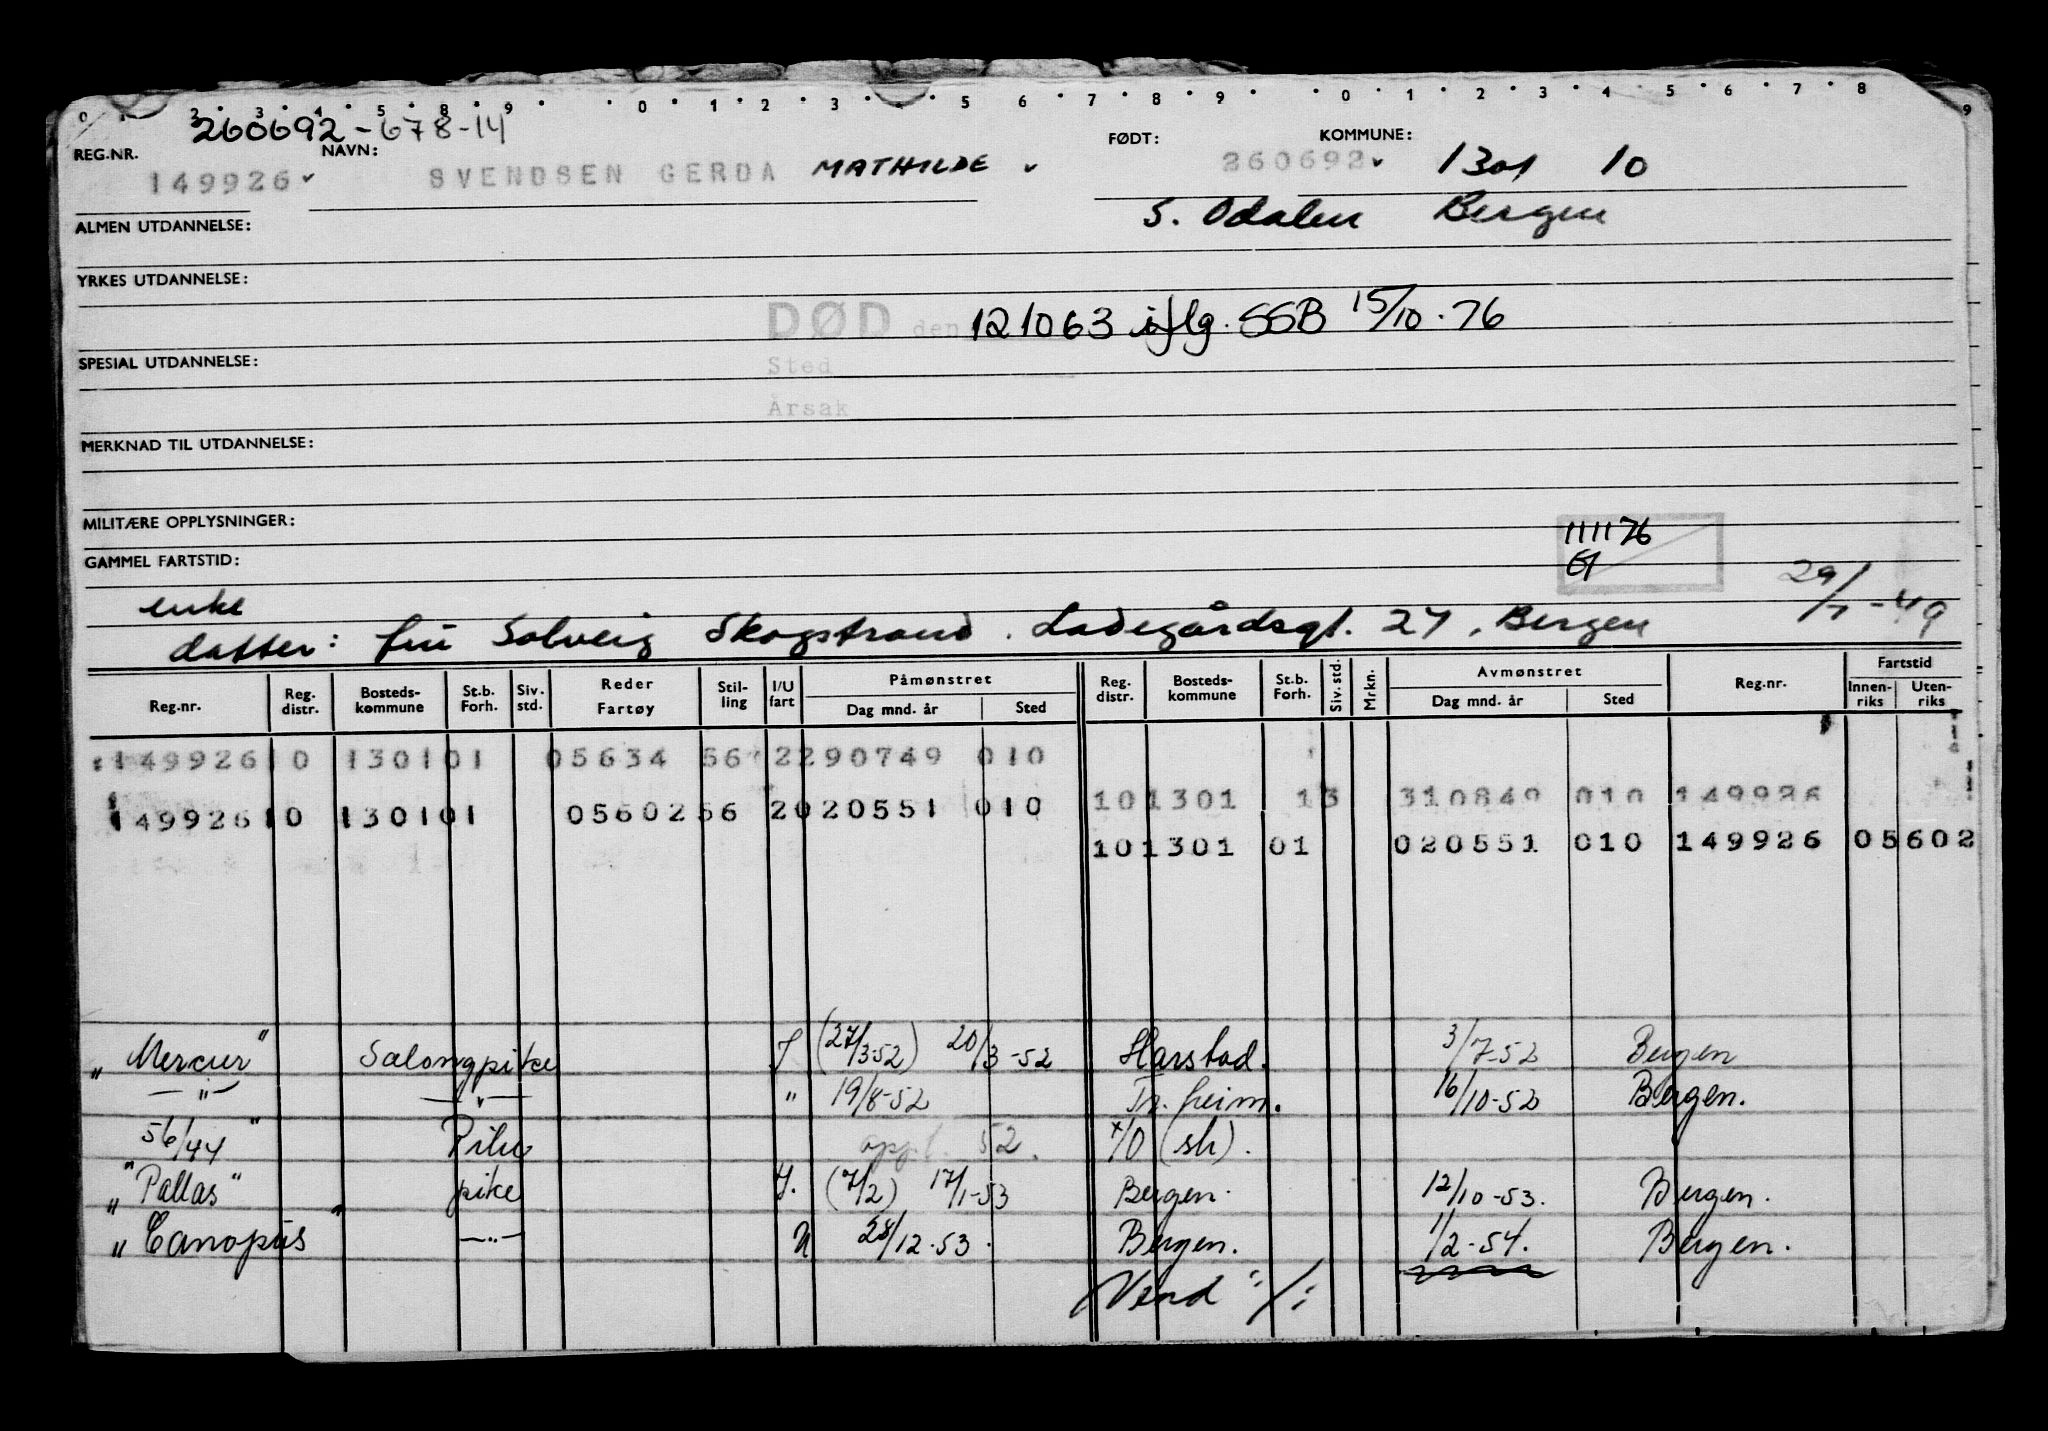 0 1 2 3 4 5 8 9 0 1 2 3 4 5 6 7 8 9 0 1 2 3 4 5 6 7 8 9
260692-678-14
REG.NR. NAVN: FØDT: KOMMUNE:
149926 SVENDSEN GERDA MATHILDE 260692 1301 10
S. Odalen Bergen
ALMEN UTDANNELSE:
YRKES UTDANNELSE:
DØD den 121063 iflg. SSB 15/10.76
SPESIAL UTDANNELSE: Sted
Årsak
MERKNAD TIL UTDANNELSE:
MILITÆRE OPPLYSNINGER: 111176
GAMMEL FARTSTID:
enke 29/7-49
datter: fru Solveig Skogstrand. Ladegårdsgt. 27, Bergen
Reg.nr. Reg. distr. Bosteds-kommune St.b. Forh. Siv. std. Reder Fartøy Stil-ling I/U fart Påmønstret Dag mnd. år Sted Reg. distr. Bosteds-kommune St.b. Forh. Siv. std. Mrkn. Avmønstret Dag mnd. år Sted Reg.nr. Fartstid Innen-riks Uten-riks
149926 10 1301 01 05634 56 2 290749 010
101301 13 310849 010 149926
149926 10 1301 01 05602 56 2 020551 010
101301 01 020551 010 149926 05602
"Mercur" Salongpike I (27/3 52) 20/3-52 Harstad. 3/7-52 Bergen
—"— —"— " 19/8-52 Tr.heim. 16/10-52 Bergen.
56/44 " Pike oppl. 52. x/0 (sk).
"Pallas" pike I. (7/2) 17/1-53 Bergen. 12/10-53. Bergen.
"Canopus" —"— U 28/12-53. Bergen. 1/2-54. Bergen.
Vend ./.